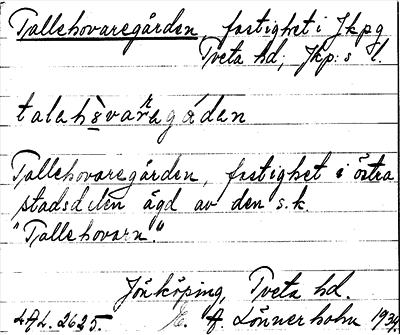 Tallehovaregården, fastighet i Jkpg
Tveta hd, Jkp:s l.
talahὸvaragádan
Tallehovaregården, fastighet i östra
stadsdelen ägd av den s.k.
"Tallehovarn."
Jönköping, Tveta hd.
ULL. 2625. E. A. Lönnerholm 1930